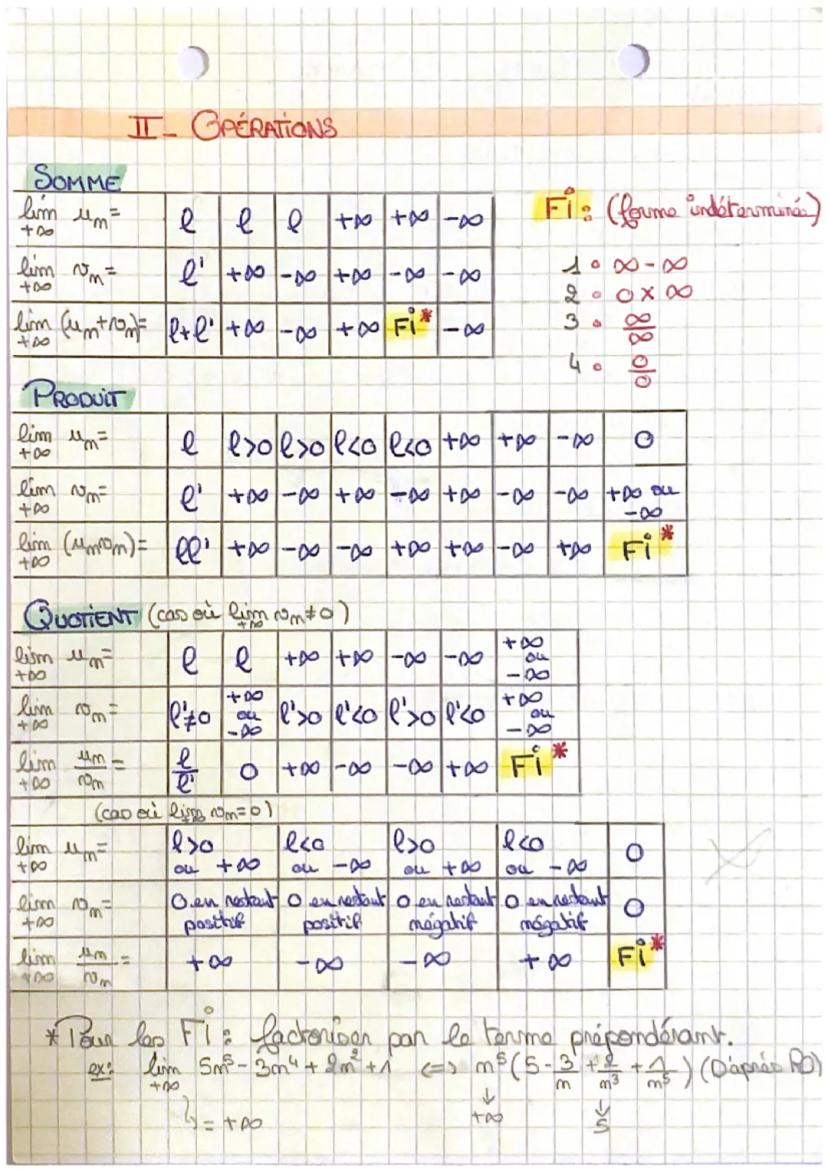 II - OPÉRATIONS
SOMME
lim +∞ un= | l | l | l | +∞ | +∞ | -∞
lim +∞ vn= | l' | +∞ | -∞ | +∞ | -∞ | -∞
lim +∞ (un+vn)= | l+l' | +∞ | -∞ | +∞ | Fi* | -∞
Fi : (forme indéterminée)
1 ∘ ∞-∞
2 ∘ 0×∞
3 ∘ ∞/∞
4 ∘ 0/0
PRODUIT
lim +∞ un= | l | l>0 | l>0 | l<0 | l<0 | +∞ | +∞ | -∞ | 0
lim +∞ vn= | l' | +∞ | -∞ | +∞ | -∞ | +∞ | -∞ | -∞ | +∞ ou -∞
lim +∞ (unvn)= | ll' | +∞ | -∞ | -∞ | +∞ | +∞ | -∞ | +∞ | Fi*
QUOTIENT (cas où lim +∞ vn≠0)
lim +∞ un= | l | l | +∞ | +∞ | -∞ | -∞ | +∞ ou -∞
lim +∞ vn= | l'≠0 | +∞ ou -∞ | l'>0 | l'<0 | l'>0 | l'<0 | +∞ ou -∞
lim +∞ un/vn= | l/l' | 0 | +∞ | -∞ | -∞ | +∞ | Fi*
(cas où lim +∞ vn=0)
lim +∞ un= | l>0 ou +∞ | l<0 ou -∞ | l>0 ou +∞ | l<0 ou -∞ | 0
lim +∞ vn= | 0 en restant positif | 0 en restant positif | 0 en restant négatif | 0 en restant négatif | 0
lim +∞ un/vn= | +∞ | -∞ | -∞ | +∞ | Fi*
* Pour les Fi : factoriser par le terme prépondérant.
ex: lim +∞ 5n⁵ - 3n⁴ + 2n² + 1 <=> n⁵(5 - 3/n + 2/n³ + 1/n⁵) (D'après RO)
= +∞ ↓ +∞ ↓ 5